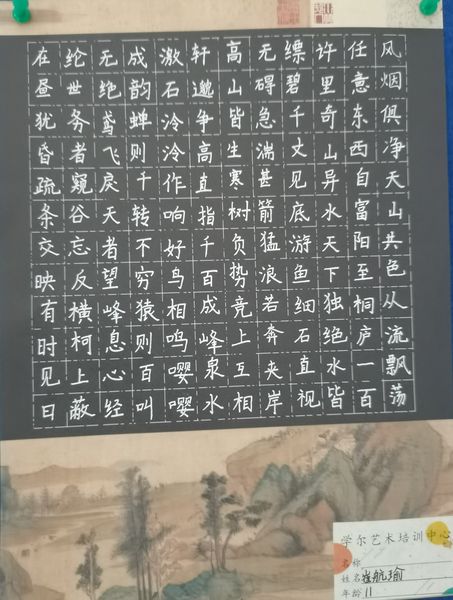 风烟俱净天山共色从流飘荡
任意东西自富阳至桐庐一百
许里奇山异水天下独绝水皆
缥碧千丈见底游鱼细石直视
无碍急湍甚箭猛浪若奔夹岸
高山皆生寒树负势竞上互相
轩邈争高直指千百成峰泉水
激石泠泠作响好鸟相鸣嘤嘤
成韵蝉则千转不穷猿则百叫
无绝鸢飞戾天者望峰息心经
纶世务者窥谷忘反横柯上蔽
在昼犹昏疏条交映有时见日
学尔艺术培训中心
名称
姓名 崔航瑜
年龄 11